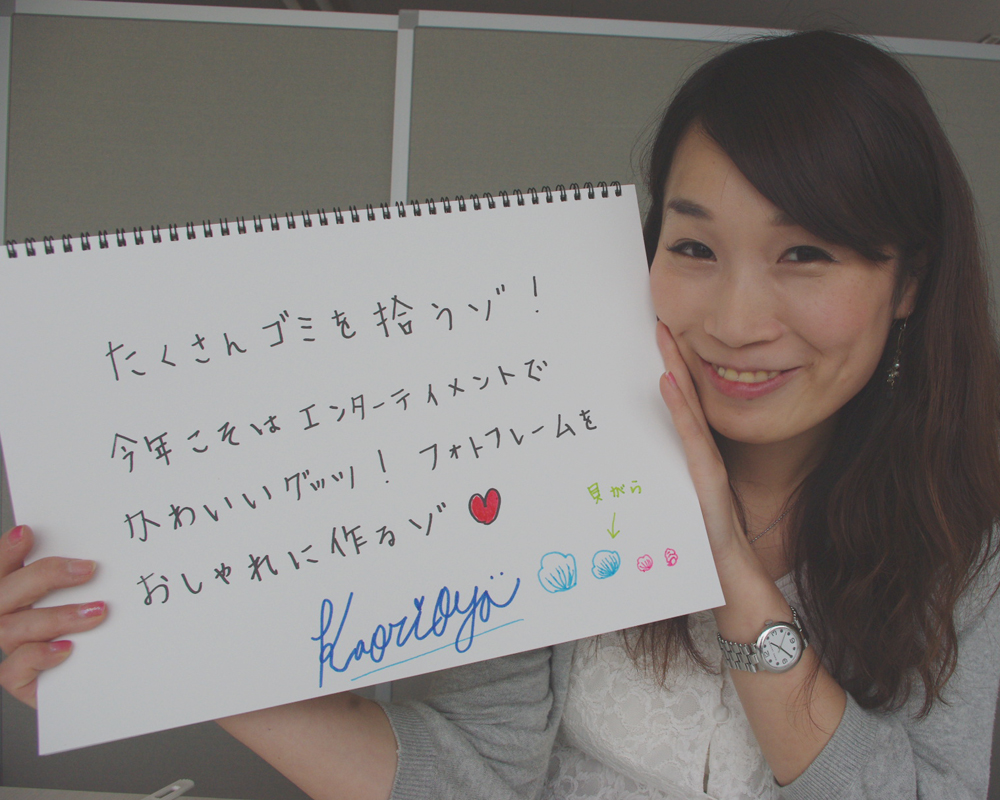 たくさんゴミを拾うゾ！
今年こそはエンターティメントで
かわいいグッツ！ フォトフレームを
おしゃれに作るゾ
貝がら
Kaorioya